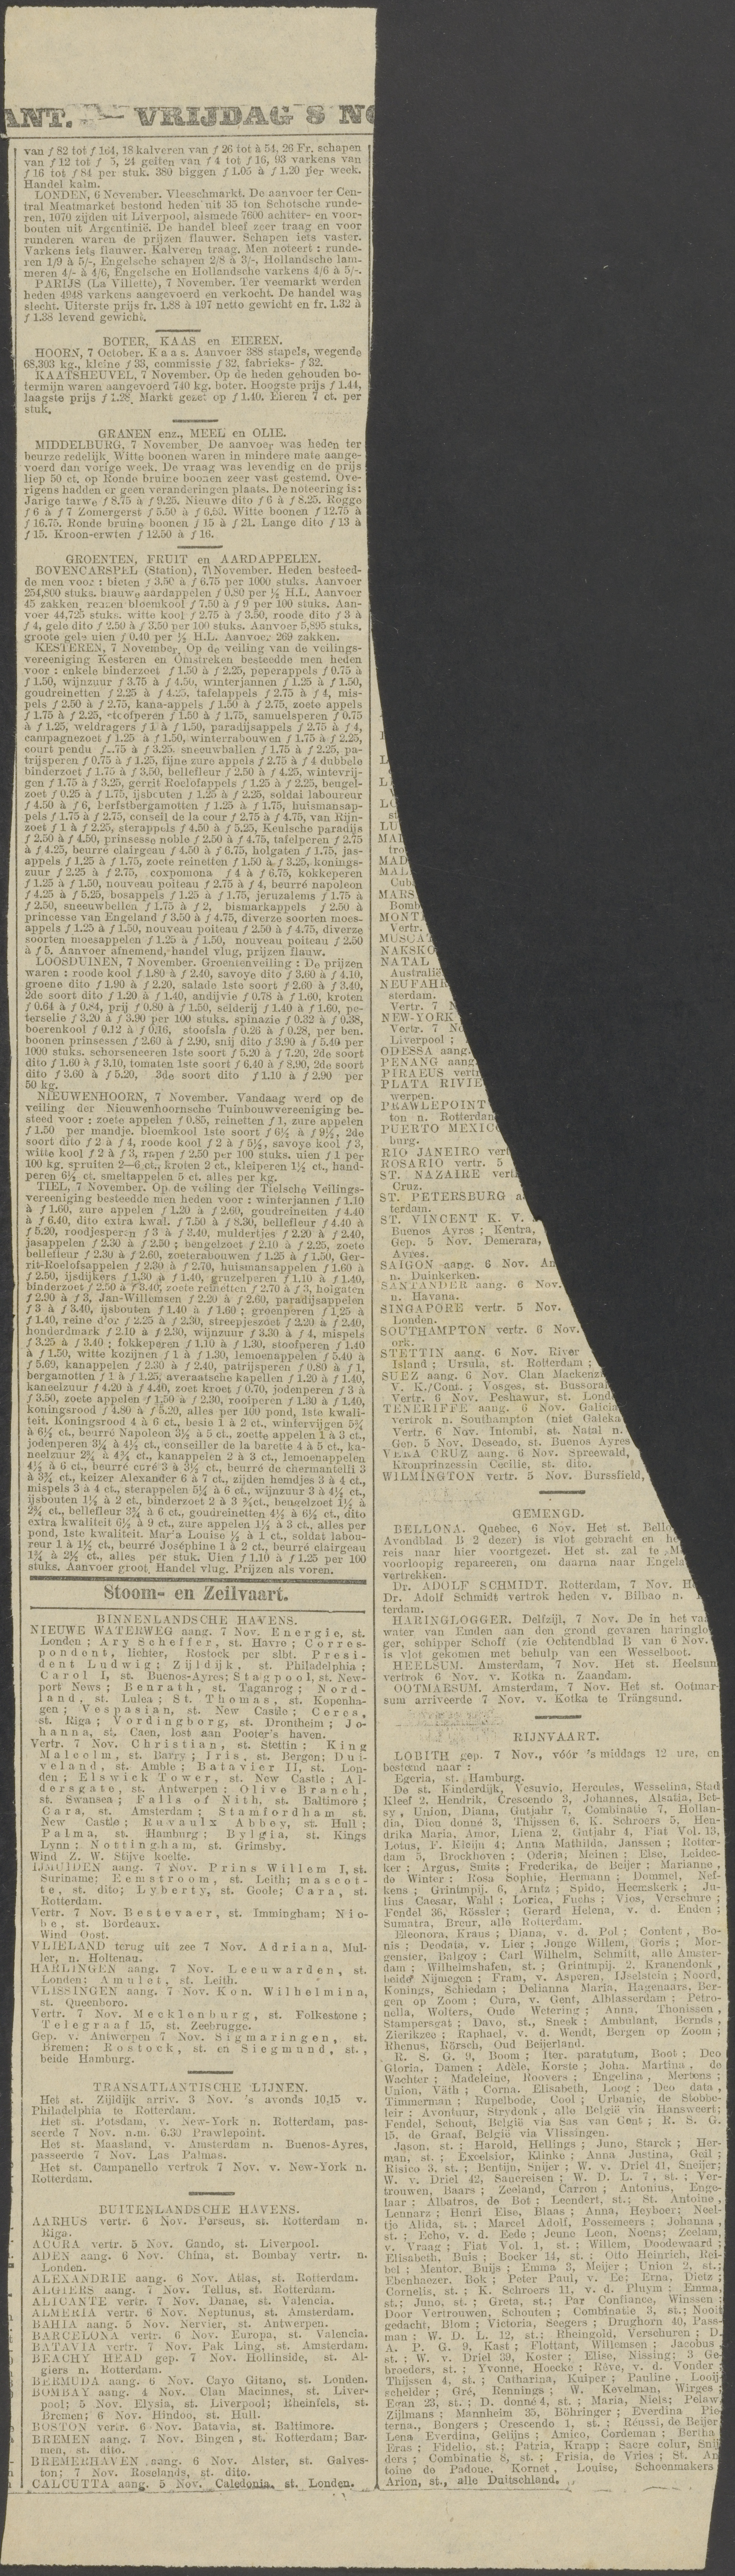 ANT. — VRIJDAG 8 NO
van ƒ 82 tot ƒ 164, 18 kalveren van ƒ 26 tot à 54, 26 Fr. schapen
van ƒ 12 tot ƒ 5, 24 geiten van ƒ 4 tot ƒ 16, 93 varkens van
ƒ 16 tot ƒ 84 per stuk. 380 biggen ƒ 1.05 à ƒ 1.20 per week.
Handel kalm.
LONDEN, 6 November. Vleeschmarkt. De aanvoer ter Cen-
tral Meatmarket bestond heden uit 35 ton Schotsche runde-
ren, 1070 zijden uit Liverpool, alsmede 7600 achter- en voor-
bouten uit Argentinië. De handel bleef zeer traag en voor
runderen waren de prijzen flauwer. Schapen iets vaster.
Varkens iets flauwer. Kalveren traag. Men noteert : runde-
ren 1/9 à 5/-, Engelsche schapen 2/8 à 3/-, Hollandsche lam-
meren 4/- à 4/6, Engelsche en Hollandsche varkens 4/6 à 5/-.
PARIJS (La Villette), 7 November. Ter veemarkt werden
heden 4948 varkens aangevoerd en verkocht. De handel was
slecht. Uiterste prijs fr. 1.88 à 197 netto gewicht en fr. 1.32 à
ƒ 1.38 levend gewicht.
BOTER, KAAS en EIEREN.
HOORN, 7 October. Kaas. Aanvoer 388 stapels, wegende
68,303 kg., kleine ƒ 33, commissie ƒ 32, fabrieks- ƒ 32.
KAATSHEUVEL, 7 November. Op de heden gehouden bo-
termijn waren aangevoerd 740 kg. boter. Hoogste prijs ƒ 1.44,
laagste prijs ƒ 1.28. Markt gezet op ƒ 1.40. Eieren 7 ct. per
stuk.
GRANEN enz., MEEL en OLIE.
MIDDELBURG, 7 November. De aanvoer was heden ter
beurze redelijk. Witte boonen waren in mindere mate aange-
voerd dan vorige week. De vraag was levendig en de prijs
liep 50 ct. op Ronde bruine boonen zeer vast gestemd. Ove-
rigens hadden er geen veranderingen plaats. De noteering is:
Jarige tarwe ƒ 8.75 à ƒ 9.25. Nieuwe dito ƒ 6 à ƒ 8.25. Rogge
ƒ 6 à ƒ 7 Zomergerst ƒ 5.50 à ƒ 6.60. Witte boonen ƒ 12.75 à
ƒ 16.75. Ronde bruine boonen ƒ 15 à ƒ 21. Lange dito ƒ 13 à
ƒ 15. Kroon-erwten ƒ 12.50 à ƒ 16.
GROENTEN, FRUIT en AARDAPPELEN.
BOVENCARSPEL (Station), 7 November. Heden besteed-
de men voor : bieten ƒ 3.50 à ƒ 6.75 per 1000 stuks. Aanvoer
254,800 stuks. blauwe aardappelen ƒ 0.80 per ½ H.L. Aanvoer
45 zakken, reuzen bloemkool ƒ 7.50 à ƒ 9 per 100 stuks. Aan-
voer 44,725 stuks. witte kool ƒ 2.75 à ƒ 3.50, roode dito ƒ 3 à
ƒ 4, gele dito ƒ 2.50 à ƒ 3.50 per 100 stuks. Aanvoer 5,895 stuks.
groote gele uien ƒ 0.40 per ½ H.L. Aanvoer 269 zakken.
KESTEREN, 7 November. Op de veiling van de veilings-
vereeniging Kesteren en Omstreken besteedde men heden
voor : enkele binderzoet ƒ 1.50 à ƒ 2.25, peperappels ƒ 0.75 à
ƒ 1.50, wijnzuur ƒ 3.75 à ƒ 4.50, winterjannen ƒ 1.25 à ƒ 1.50,
goudreinetten ƒ 2.25 à ƒ 4.25, tafelappels ƒ 2.75 à ƒ 4, mis-
pels ƒ 2.50 à ƒ 2.75, kana-appels ƒ 1.50 à ƒ 2.75, zoete appels
ƒ 1.75 à ƒ 2.25, stoofperen ƒ 1.50 à ƒ 1.75, samuelsperen ƒ 0.75
à ƒ 1.25, weldragers ƒ 1 à ƒ 1.50, paradijsappels ƒ 2.75 à ƒ 4,
campagnezoet ƒ 1.25 à ƒ 1.50, winterrabouwen ƒ 1.75 à ƒ 2.25,
court pendu ƒ .75 à ƒ 3.25. sneeuwballen ƒ 1.75 à ƒ 2.25, pa-
trijsperen ƒ 0.75 à ƒ 1.25, fijne zure appels ƒ 2.75 à ƒ 4 dubbele
binderzoet ƒ 1.75 à ƒ 3.50, bellefleur ƒ 2.50 à ƒ 4.25, wintevrij-
gen ƒ 1.75 à ƒ 3.25, gerrit Roelofappels ƒ 1.25 à ƒ 2.25, beugel-
zoet ƒ 0.25 à ƒ 1.75, ijsbouten ƒ 1.25 à ƒ 2.25, soldai laboureur
ƒ 4.50 à ƒ 6, herfstbergamotten ƒ 1.25 à ƒ 1.75, huismansap-
pels ƒ 1.75 à ƒ 2.75, conseil de la cour ƒ 2.75 à ƒ 4.75, van Rijn-
zoet ƒ 1 à ƒ 2.25, sterappels ƒ 4.50 à ƒ 5.25, Keulsche paradijs
ƒ 2.50 à ƒ 4.50, prinsesse noble ƒ 2.50 à ƒ 4.75, tafelperen ƒ 2.75
à ƒ 4.25, beurré clairgeau ƒ 4.50 à ƒ 6.75, holgaten ƒ 1.75, jas-
appels ƒ 1.25 à ƒ 1.75, zoete reinetten ƒ 1.50 à ƒ 3.25, konings-
zuur ƒ 2.25 à ƒ 2.75, coxpomona ƒ 4 à ƒ 6.75, kokkeperen
ƒ 1.25 à ƒ 1.50, nouveau poiteau ƒ 2.75 à ƒ 4, beurré napoleon
ƒ 4.25 à ƒ 5.25, bosappels ƒ 1.25 à ƒ 1.75, jeruzalems ƒ 1.75 à
ƒ 2.50, sneeuwbellen ƒ 1.75 à ƒ 2, bismarkappels ƒ 2.50 à
princesse van Engeland ƒ 3.50 à ƒ 4.75, diverze soorten moes-
appels ƒ 1.25 à ƒ 1.50, nouveau poiteau ƒ 2.50 à ƒ 4.75, diverze
soorten moesappelen ƒ 1.25 à ƒ 1.50, nouveau poiteau ƒ 2.50
à ƒ 5. Aanvoer afnemend, handel vlug, prijzen flauw.
LOOSDUINEN, 7 November. Groentenveiling : De prijzen
waren : roode kool ƒ 1.80 à ƒ 2.40, savoye dito ƒ 3.60 à ƒ 4.10,
groene dito ƒ 1.90 à ƒ 2.20, salade 1ste soort ƒ 2.60 à ƒ 3.40,
2de soort dito ƒ 1.20 à ƒ 1.40, andijvie ƒ 0.78 à ƒ 1.60, kroten
ƒ 0.64 à ƒ 0.84, prij ƒ 0.80 à ƒ 1.50, selderij ƒ 1.40 à ƒ 1.60, pe-
terselie ƒ 3.20 à ƒ 3.90 per 100 stuks. spinazie ƒ 0.32 à ƒ 0.38,
boerenkool ƒ 0.12 à ƒ 0.16, stoofsla ƒ 0.26 à ƒ 0.28, per ben.
boonen prinsessen ƒ 2.60 à ƒ 2.90, snij dito ƒ 3.90 à ƒ 5.40 per
1000 stuks. schorseneeren 1ste soort ƒ 5.20 à ƒ 7.20, 2de soort
dito ƒ 1.60 à ƒ 3.10, tomaten 1ste soort ƒ 6.40 à ƒ 8.90, 2de soort
dito ƒ 3.60 à ƒ 5.20, 3de soort dito ƒ 1.10 à ƒ 2.90 per
50 kg.
NIEUWENHOORN, 7 November. Vandaag werd op de
veiling der Nieuwenhoornsche Tuinbouwvereeniging be-
steed voor : zoete appelen ƒ 0.85, reinetten ƒ 1, zure appelen
ƒ 1.50 per mandje. bloemkool 1ste soort ƒ 6½ à ƒ 9½, 2de
soort dito ƒ 2 à ƒ 4, roode kool ƒ 2 à ƒ 5½, savoye kool ƒ 3,
witte kool ƒ 2 à ƒ 3, rapen ƒ 2.50 per 100 stuks. uien ƒ 1 per
100 kg. spruiten 2—6 ct., kroten 2 ct., kleiperen 1½ ct., hand-
peren 6½ ct. smeltappelen 5 ct. alles per kg.
TIEL, 7 November. Op de veiling der Tielsche Veilings-
vereeniging besteedde men heden voor : winterjannen ƒ 1.10
à ƒ 1.60, zure appelen ƒ 1.20 à ƒ 2.60, goudreinetten ƒ 4.40
à ƒ 6.40, dito extra kwal. ƒ 7.50 à ƒ 8.30, bellefleur ƒ 4.40 à
ƒ 5.20, roodjesperen ƒ 3 à ƒ 3.40, muldertjes ƒ 2.20 à ƒ 2.40,
jasappelen ƒ 2.30 à ƒ 2.50 ; bengelzoet ƒ 2.10 à ƒ 2.25, zoete
bellefleur ƒ 2.30 à ƒ 2.60, zoeterabouwen ƒ 1.25 à ƒ 1.50, Ger-
rit-Roelofsappelen ƒ 2.30 à ƒ 2.70, huismansappelen ƒ 1.60 à
ƒ 2.50, ijsdijkers ƒ 1.30 à ƒ 1.40, gruzelperen ƒ 1.10 à ƒ 1.40,
binderzoet ƒ 2.50 à ƒ 3.40, zoete reinetten ƒ 2.70 à ƒ 3, holgaten
ƒ 2.90 à ƒ 3, Jan-Willemsen ƒ 2.20 à ƒ 2.60, paradijsappelen
ƒ 3 à ƒ 3.40, ijsbouten ƒ 1.40 à ƒ 1.60 ; groenperen ƒ 1.25 à
ƒ 1.40, reine d'or ƒ 2.25 à ƒ 2.30, streepjeszoet ƒ 2.20 à ƒ 2.40,
honderdmark ƒ 2.10 à ƒ 2.30, wijnzuur ƒ 3.30 à ƒ 4, mispels
ƒ 3.25 à ƒ 3.40 ; fokkeperen ƒ 1.10 à ƒ 1.30, stoofperen ƒ 1.40
à ƒ 1.50, witte kozijnen ƒ 1 à ƒ 1.30, lemoenappelen ƒ 5.40 à
ƒ 5.60, kanappelen ƒ 2.30 à ƒ 2.40, patrijsperen ƒ 0.80 à ƒ 1,
bergamotten ƒ 1 à ƒ 1.25, averaatsche kapellen ƒ 1.20 à ƒ 1.40,
kaneelzuur ƒ 4.20 à ƒ 4.40, zoet kroet ƒ 0.70, jodenperen ƒ 3 à
ƒ 3.50, zoete appelen ƒ 1.50 à ƒ 2.30, rooiperen ƒ 1.30 à ƒ 1.40,
koningsrood ƒ 4.80 à ƒ 5.20, alles per 100 pond, 1ste kwali-
teit. Koningsrood 4 à 6 ct., besie 1 à 2 ct., wintervijgen 5¾
à 6½ ct., beurré Napoleon 3½ à 5 ct., zoete appelen 1 à 3 ct.,
jodenperen 3¼ à 4½ ct., conseiller de la barette 4 à 5 ct., ka-
neelzuur 2¾ à 4¾ ct., kanappelen 2 à 3 ct., lemoenappelen
4½ à 6 ct., beurré curé 3 à 3½ ct., beurré de chermantelli 3
à 3¾ ct., keizer Alexander 6 à 7 ct., zijden hemdjes 3 à 4 ct.,
mispels 3 à 4 ct., sterappelen 5¼ à 6 ct., wijnzuur 3 à 4½ ct.,
ijsbouten 1½ à 2 ct., binderzoet 2 à 3 ¾ct., bengelzoet 1½ à
2¾ ct., bellefleur 3¾ à 6 ct., goudreinetten 4½ à 6½ ct., dito
extra kwaliteit 6½ à 9 ct., zure appelen 1½ à 3 ct., alles per
pond, 1ste kwaliteit. Mar'a Louise ½ à 1 ct., soldat labou-
reur 1 à 1½ ct., beurré Joséphine 1 à 2 ct., beurré clairgeau
1¾ à 2½ ct., alles per stuk. Uien ƒ 1.10 à ƒ 1.25 per 100
stuks. Aanvoer groot. Handel vlug. Prijzen als voren.
Stoom- en Zeilvaart.
BINNENLANDSCHE HAVENS.
NIEUWE WATERWEG aang. 7 Nov. Energie, st.
Londen ; Ary Scheffer, st. Havre ; Corres-
pondent, lichter, Rostock per slbt. Presi-
dent Ludwig ; Zijldijk, st. Philadelphia ;
Carol I, st. Buenos-Ayres ; Stagpool, st. New-
port News ; Benrath, st. Taganrog ; Nord-
land, st. Lulea ; St. Thomas, st. Kopenha-
gen ; Vespasian, st. New Castle ; Ceres,
st. Riga ; Vordingborg, st. Drontheim ; Jo-
hanna, st. Caen, lost aan Pooter's haven.
Vertr. 7 Nov. Christian, st. Stettin ; King
Malcolm, st. Barry ; Iris, st. Bergen ; Dui-
veland, st. Amble ; Batavier II, st. Lon-
den ; Elswick Tower, st. New Castle ; Al-
dersgate, st. Antwerpen ; Olive Branch,
st. Swansea ; Falls of Nith, st. Baltimore ;
Cara, st. Amsterdam ; Stamfordham st.
New Castle ; Ruvaulx Abbey, st. Hull ;
Palma, st. Hamburg ; Bylgia, st. Kings
Lynn ; Nottingham, st. Grimsby.
Wind Z. W. Stijve koelte.
IJMUIDEN aang. 7 Nov. Prins Willem I, st.
Suriname; Eemstroom, st. Leith; mascot-
te, st. dito; Lyberty, st. Goole; Cara, st.
Rotterdam.
Vertr. 7 Nov. Bestevaer, st. Immingham; Nio-
be, st. Bordeaux.
Wind Oost.
VLIELAND terug uit zee 7 Nov. Adriana, Mul-
ler, n. Holtenau.
HARLINGEN aang. 7 Nov. Leeuwarden, st.
Londen; Amulet, st. Leith.
VLISSINGEN aang. 7 Nov. Kon. Wilhelmina,
st. Queenboro.
Vertr. 7 Nov. Mecklenburg, st. Folkestone ;
Telegraaf 15, st. Zeebrugge.
Gep. v. Antwerpen 7 Nov. Sigmaringen, st.
Bremen; Rostock, st. en Siegmund, st.,
beide Hamburg.
TRANSATLANTISCHE LIJNEN.
Het st. Zijldijk arriv. 3 Nov. 's avonds 10,15 v.
Philadelphia te Rotterdam.
Het st. Potsdam, v. New-York n. Rotterdam, pas-
seerde 7 Nov. n.m. 6.30 Prawlepoint.
Het st. Maasland, v. Amsterdam n. Buenos-Ayres,
passeerde 7 Nov. Las Palmas.
Het st. Campanello vertrok 7 Nov. v. New-York n.
Rotterdam.
BUITENLANDSCHE HAVENS.
AARHUS vertr. 6 Nov. Perseus, st. Rotterdam n.
Riga.
ACCRA vertr. 5 Nov. Gando, st. Liverpool.
ADEN aang. 6 Nov. China, st. Bombay vertr. n.
Londen.
ALEXANDRIE aang. 6 Nov. Atlas, st. Rotterdam.
ALGIERS aang. 7 Nov. Tellus, st. Rotterdam.
ALICANTE vertr. 7 Nov. Danae, st. Valencia.
ALMERIA vertr. 6 Nov. Neptunus, st. Amsterdam.
BAHIA aang. 5 Nov. Nervier, st. Antwerpen.
BARCELONA vertr. 6 Nov. Europa, st. Valencia.
BATAVIA vertr. 7 Nov. Pak Ling, st. Amsterdam.
BEACHY HEAD gep. 7 Nov. Hollinside, st. Al-
giers n. Rotterdam.
BERMUDA aang. 6 Nov. Cayo Gitano, st. Londen.
BOMBAY aang. 4 Nov. Clan Macinnes, st. Liver-
pool; 5 Nov. Elysia, st. Liverpool; Rheinfels, st.
Bremen; 6 Nov. Hindoo, st. Hull.
BOSTON vertr. 6 Nov. Batavia, st. Baltimore.
BREMEN aang. 7 Nov. Bingen, st. Rotterdam; Bar-
men, st. dito.
BREMERHAVEN aang. 6 Nov. Alster, st. Galves-
ton; 7 Nov. Roselands, st. dito.
CALCUTTA aang. 5 Nov. Caledonia, st. Londen.
L
L
LO
st
LU
MAL
tro
MAD
MAL
Cub
MARS
Bomb
MONT
Vertr.
MUSCAT
NAKSKO
NATAL
Australië
NEUFAHR
sterdam.
Vertr. 7 N
NEW-YORK
Vertr. 7 No
Liverpool ;
ODESSA aang.
PENANG aang
PIRAEUS vertr
PLATA RIVIE
werpen.
PRAWLEPOINT
ton n. Rotterdam
PUERTO MEXICO
burg.
RIO JANEIRO vert
ROSARIO vertr. 5
ST. NAZAIRE vert
Cruz.
ST. PETERSBURG a
terdam.
ST. VINCENT K. V.
Buenos Ayres ; Kentra,
Gep. 5 Nov. Demerara,
Ayres.
SAIGON aang. 6 Nov. An
n. Duinkerken.
SANTANDER aang. 6 Nov.
n. Havana.
SINGAPORE vertr. 5 Nov.
Londen.
SOUTHAMPTON vertr. 6 Nov.
ork.
STETTIN aang. 6 Nov. River
Island ; Ursula, st. Rotterdam ;
SUEZ aang. 6 Nov. Clan Mackenz
V. K./Cont. ; Vosges, st. Bussorah
Vertr. 6 Nov. Peshawur, st. Lond
TENERIFFE aang. 6 Nov. Galicia
vertrok n. Southampton (niet Galeka
Vertr. 6 Nov. Intombi, st. Natal n.
Gep. 5 Nov. Descado, st. Buenos Ayres
VERA CRUZ aang. 6 Nov. Spreewald,
Kronprinzessin Cecilie, st. dito.
WILMINGTON vertr. 5 Nov. Burssfield,
GEMENGD.
BELLONA. Quebec, 6 Nov. Het st. Bello
Avondblad B 2 dezer) is vlot gebracht en he
reis naar hier voortgezet. Het st. zal te M
voorloopig repareeren, om daarna naar Engela
vertrekken.
Dr. ADOLF SCHMIDT. Rotterdam, 7 Nov. H
Dr. Adolf Schmidt vertrok heden v. Bilbao n.
terdam.
HARINGLOGGER. Delfzijl, 7 Nov. De in het va
water van Emden aan den grond gevaren haringlo
ger, schipper Schoff (zie Ochtendblad B van 6 Nov.
is vlot gekomen met behulp van een Wesselboot.
HEELSUM. Amsterdam, 7 Nov. Het st. Heelsum
vertrok 6 Nov. v. Kotka n. Zaandam.
OOTMARSUM. Amsterdam, 7 Nov. Het st. Ootmar-
sum arriveerde 7 Nov. v. Kotka te Trängsund.
RIJNVAART.
LOBITH gep. 7 Nov., vóór 's middags 12 ure, en
bestemd naar :
Egeria, st. Hamburg.
De st. Kinderdijk, Vesuvio, Hercules, Wesselina, Stad
Kleef 2, Hendrik, Crescendo 3, Johannes, Alsatia, Bet-
sy, Union, Diana, Gutjahr 7, Combinatie 7, Hollan-
dia, Dieu donné 3, Thijssen 6, K. Schroers 5, Hen-
drika Maria, Amor, Liena 2, Gutjahr 4, Fiat Vol. 13,
Lotus, F. Kleijn 4; Anna Mathilda, Janssen ; Rotter-
dam 5, Brockhoven ; Oderia, Meinen ; Else, Leidec-
ker ; Argus, Smits ; Frederika, de Beijer ; Marianne,
de Winter ; Rosa Sophie, Hermann ; Dommel, Nef-
kens ; Grintmpij. 6, Arntz ; Spido, Heemskerk ; Ju-
lius Caesar, Wahl ; Lorica, Fuchs ; Vios, Verschure ;
Fendel 36, Rössler ; Gerard Helena, v. d. Enden ;
Sumatra, Breur, alle Rotterdam.
Eleonora, Kraus ; Diana, v. d. Pol ; Content, Bo-
nis ; Deodata, v. Lier ; Jonge Willem, Goris ; Mor-
genster, Balgoy ; Carl Wilhelm, Schmitt, alle Amster-
dam ; Wilhelmshafen, st. ; Grintmpij. 2, Kranendonk,
beide Nijmegen ; Fram, v. Asperen, IJselstein ; Noord,
Konings, Schiedam ; Delianna Maria, Hagenaars, Ber-
gen op Zoom ; Cura, v. Gent, Alblasserdam ; Petro-
nella, Wolters, Oude Wetering ; Anna, Thonissen,
Stampersgat ; Davo, st., Sneek ; Ambulant, Bernds,
Zierikzee ; Raphael, v. d. Wendt, Bergen op Zoom ;
Rhenus, Rörsch, Oud Beijerland.
R. S. G. 9, Boom ; Iter. paratutum, Boot ; Deo
Gloria, Damen ; Adèle, Korste ; Joha. Martina, de
Wachter ; Madeleine, Roovers ; Engelina, Mertens ;
Union, Väth ; Corna. Elisabeth, Loog ; Deo data,
Timmerman ; Rupelbode, Cool ; Urbanie, de Stobbe-
leir ; Avontuur, Strydonk, alle België via Hansweert;
Fendel, Schout, België via Sas van Gent ; R. S. G.
15, de Graaf, België via Vlissingen.
Jason, st. ; Harold, Hellings ; Juno, Starck ; Her-
man, st. ; Excelsior, Klinke ; Anna Justina, Geil ;
Risico 3, st. ; Bentijn, Snijer ; W. v. Driel 41, Sneijer;
W. v. Driel 42, Saucreisen ; W. D. L. 7, st. ; Ver-
trouwen, Baars ; Zeeland, Carron ; Antonius, Enge-
laar ; Albatros, de Bot ; Leendert, st.; St. Antoine,
Lennarz ; Henri Else, Blaas ; Anna, Heyboer; Neel-
tje Alida, st. ; Marcel Adolf, Possemeers ; Johanna,
st. ; Echo, v. d. Eede ; Jeune Leon, Noens; Zeelam,
v. Vraag ; Fiat Vol. 1, st. ; Willem, Doodewaard ;
Elisabeth, Buis ; Bocker 14, st. ; Otto Heinrich, Rei-
bel ; Mentor, Buijs ; Emma 3, Meijer ; Union 2, st.;
Ebenhaezer, Bok ; Peter Paul, v. Ee; Erna, Dietz ;
Cornelis, st. ; K. Schroers 11, v. d. Pluym ; Emma,
st.; Juno, st. ; Greta, st.; Par Confiance, Winssen ;
Door Vertrouwen, Schouten ; Combinatie 3, st.; Nooit
gedacht, Blom ; Victoria, Seegers ; Drughorn 40, Pass-
man ; W. D. L. 12, st.; Rheingold, Verschuren ; D.
A. P. G. 9, Kast ; Flottant, Willemsen ; Jacobus,
st. ; W. v. Driel 39, Koster ; Elise, Nissing; 3 Ge-
broeders, st. ; Yvonne, Hoecke ; Rêve, v. d. Vonder ;
Thijssen 4, st. ; Catharina, Kuiper ; Pauline, Looij
schelder ; Gré, Rennings ; W. Kevelman, Wirges ;
Egan 23, st. ; D. donné 4, st. ; Maria, Niels; Pelaw,
Zijlmans ; Mannheim 35, Böhringer ; Everdina Pie-
terna., Bongers ; Crescendo 1, st. ; Réussi, de Beijer
Lena Everdina, Gelijns ; Amico, Cordeman ; Bertha
Eras ; Fidelio, st. Patria, Krapp ; Sacre colur, Snij
ders ; Combinatie 8, st. ; Frisia, de Vries ; St. An
toine de Padoue, Kornet, Louise, Schoenmakers
Arion, st., alle Duitschland.